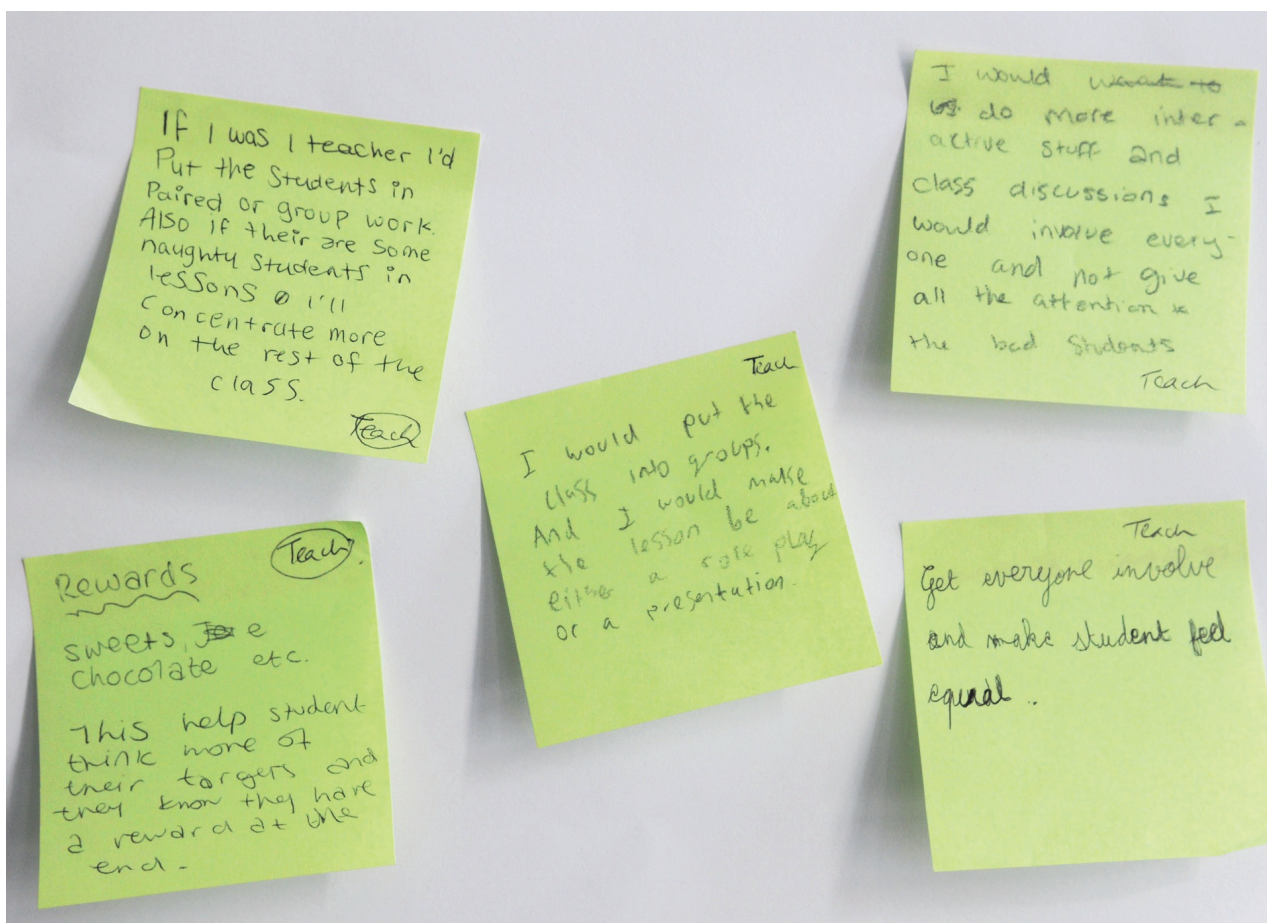 If I was 1 teacher I'd
Put the Students in
Paired or group work.
Also if their are some
naughty students in
lessons I'll
concentrate more
on the rest of the
class.
Teach
I would
do more inter-
active stuff and
class discussions I
would involve every-
one and not give
all the attention
the bad students
Teach
Teach
I would put the
class into groups.
And I would make
the lesson be about
either a role play
or a presentation.
Teach
Rewards
sweets,
chocolate etc.
This help student
think more of
their torgers and
they know they have
a reward at the
end.
Teach
Get everyone involve
and make student feel
equal..